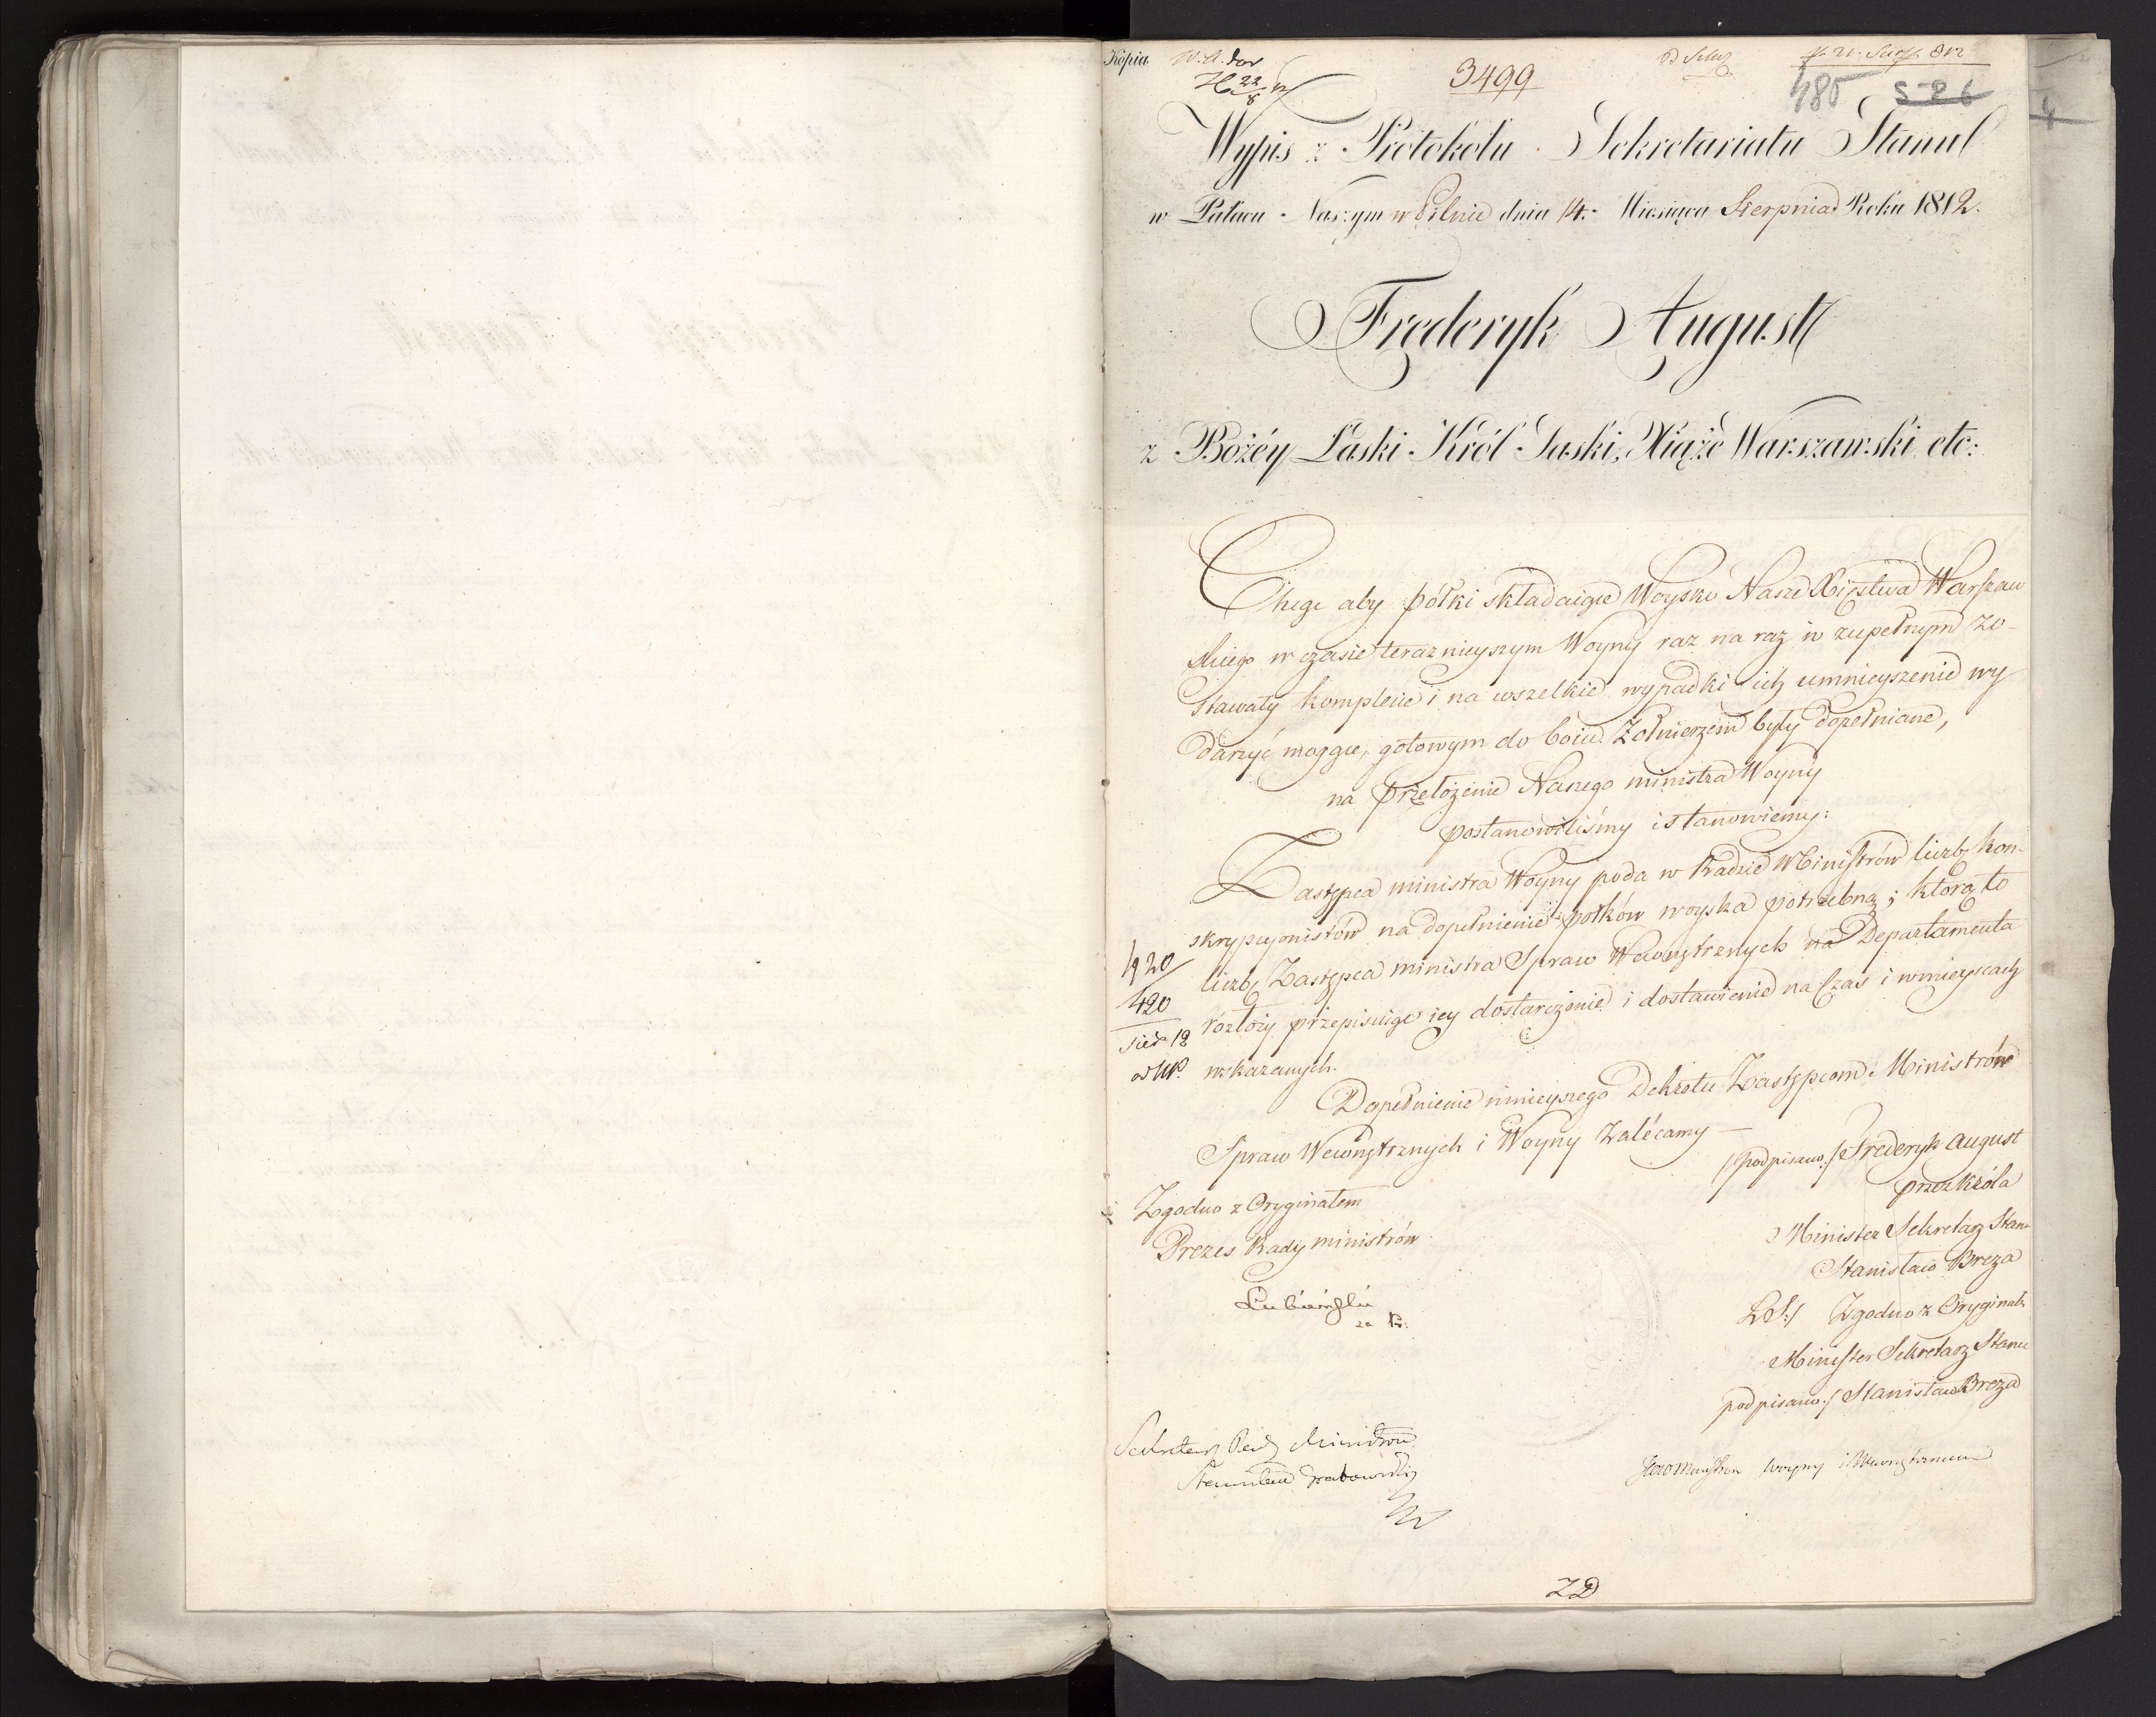 Kopia
3499
485 526
4
Wypis z Protokołu Sekretariatu Stanu
w Pałacu Naszym w Pilnie dnia 14. Miesiąca Sierpnia Roku 1812.
Frederyk August
z Bożéy Łaski Król Saski, Xiąże Warszawski etc:
Chcąc aby półki składaiące Woysko Nasze Xięstwa Warszaw
skiego w czasie teraznieyszym Woyny raz na raz w zupełnym zo-
stawały komplecie i na wszelkie wypadki ich umnieyszenie wy
darzyć mogące, gotowym do boiu Żołnierzem były dopełniane,
na przełożenie Naszego ministra Woyny
postanowiliśmy i stanowiemy:
Zastępca ministra Woyny poda w Radzie Ministrów liczbę kon-
skrypcyonistów na dopełnienie połków woyska potrzebną; którą to
liczbę Zastępca ministra Spraw Wewnętrznych na Departamenta
rozłoży przepisuiąc iey dostarczenie i dostawienie na czas i w mieyscach
wskazanych.
420
420
Dopełnienie ninieyszego Dekretu Zastępcom Ministrów
Spraw Wewnętrznych i Woyny zalécamy —
/podpisano:/ Frederyk August
przez Króla
Minister Sekretarz Stanu
Stanisław Breza
L.S:/ Zgodno z Orygina:
Minister Sekretarz Stanu
podpisano:/ Stanisław Breza
Zgodno z Oryginałem
Prezes Rady ministrów
Lubieński
za P:
Sekretarz Rady Ministrów
Stanisław Grabowski
Woyny i Wewnętrznemu
ZD